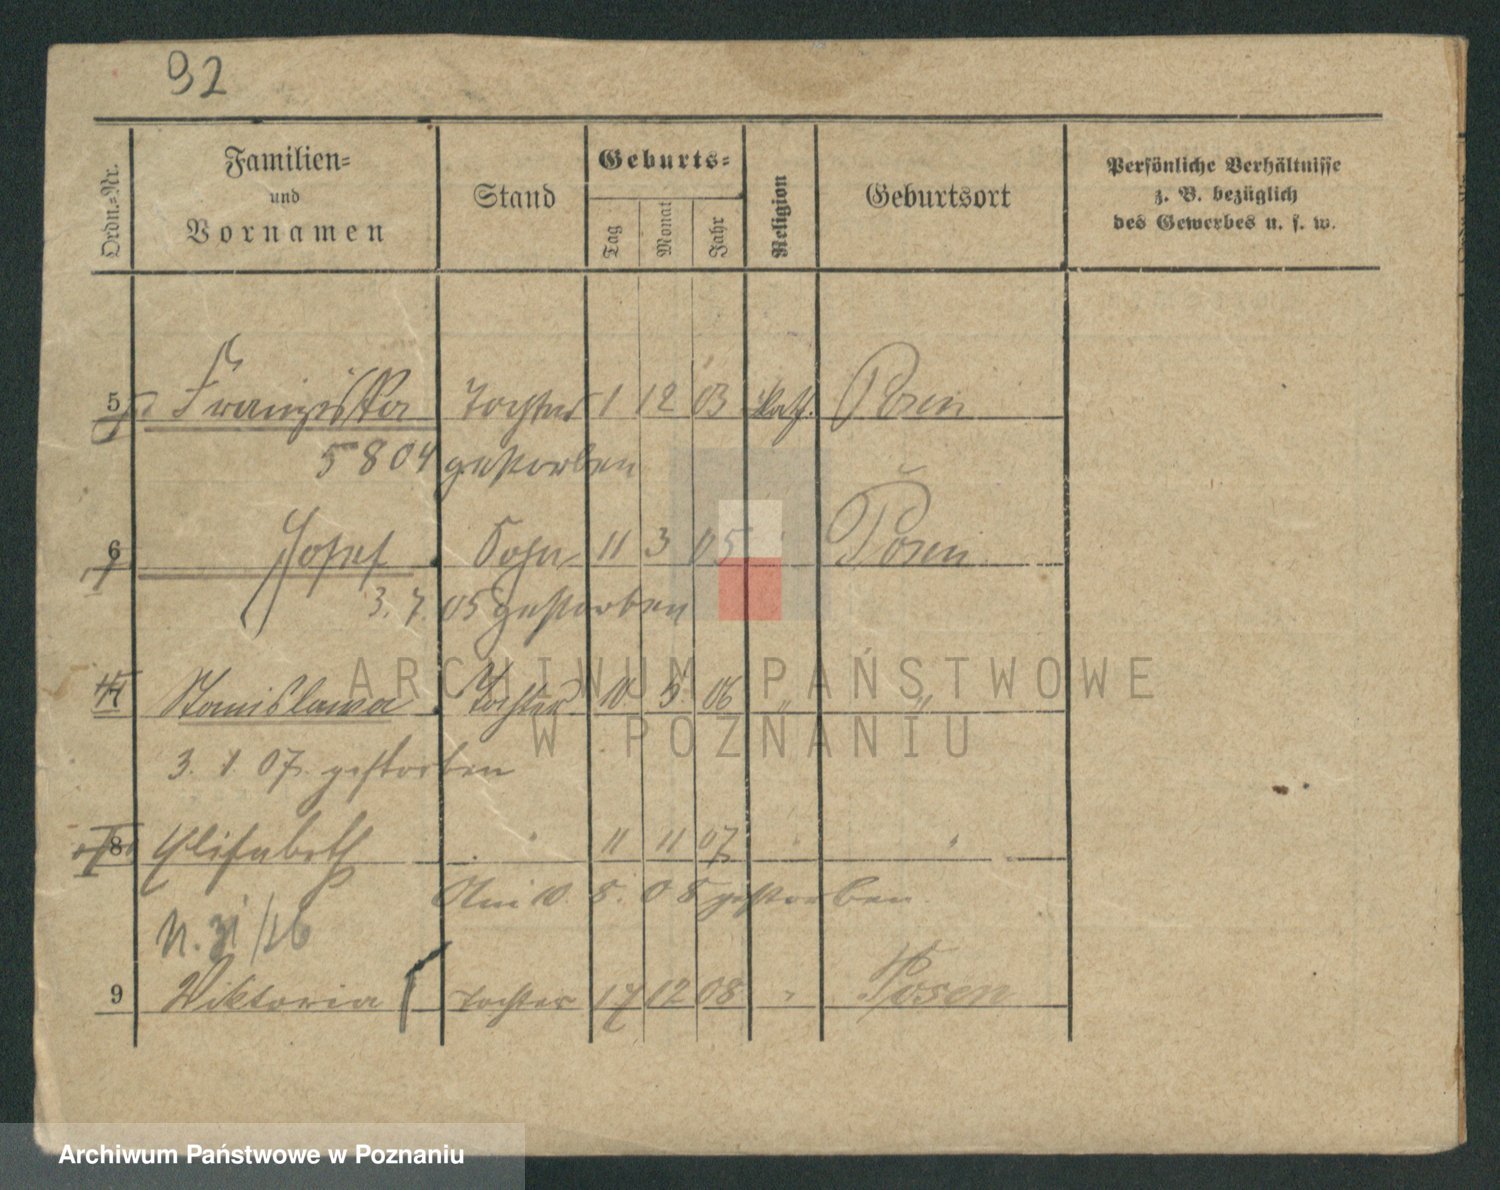 92
Ordn.-Nr.
Familien-
und
Vornamen
Stand
Geburts-
Tag
Monat
Jahr
Religion
Geburtsort
Persönliche Verhältnisse
z. B. bezüglich
des Gewerbes u. s. w.
5 Franziska Tochter 1 12 03 kath. Posen
5 8 04 gestorben
6 Josef Sohn 11 3 05 Posen
3. 7. 05 gestorben
ARCHIWUM PAŃSTWOWE
W POZNANIU
Stanislawa Tochter 10 5 06 " "
3. 1. 07. gestorben
8 Elisabeth " 11 11 07 " "
8. 08 gestorben.
9 Wiktoria Tochter 17 12 08 " Posen
Archiwum Państwowe w Poznaniu